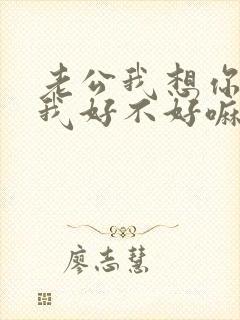 老公我想你
我好不好嘛
廖志慧